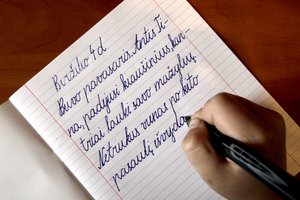 Birželio 4 d.
Buvo pavasaris. Antis Ti-
na, padėjusi kiaušinius, kan-
triai laukė savo mažylių.
Netrukus vienas po kito
pasaulį išvydo